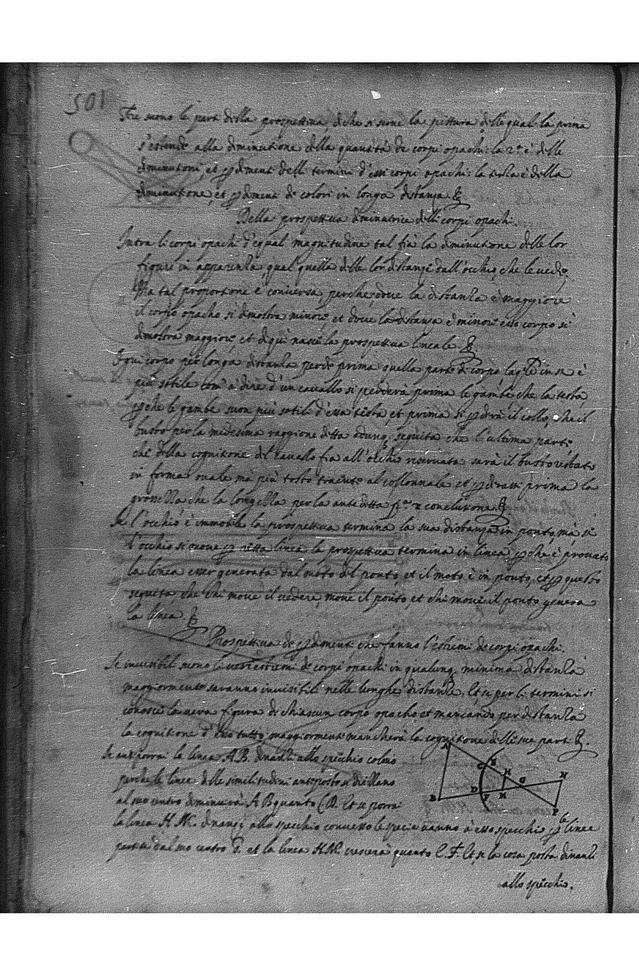 501
Tre sono le parti della prospettiva di che si serve la pittura delle qual la prima
s'estende alla diminutione della quantità de corpi opachi: la 2ª è delle
diminutioni, et perdimenti delli termini d'essi corpi opachi: la terza è della
diminutione et perdimenti de colori in longa distanza
Della prospettiva diminutrice delli corpi opachi.
Intra li corpi opachi d'equal magnitudine tal fia la diminutione delle lor
figure in apparenza qual quella delle lor distanze dall'occhio che le vede,
Ma tal proportione è conversa, perche dove la distanza è maggiore
il corpo opacho si dimostra minore et dove la distanza è minore esso corpo si
dimostra maggiore et di qui nasce la prospettiva lineale
Ogni corpo per longa distanza perde prima quella parte di corpo la in se è
più sottile com'a dire d'un cavallo si perderà prima le gambe che la testa
perche le gambe sono più sottili d'essa testa, et prima si perdrà il collo, che il
busto per la medesima raggione ditta adunq. seguita che l'ultima parte
che della cognitione del cavallo fia all'occhio riservata sarà il busto restato
in forma ovale ma più tosto tracute al collonnale et perderassi prima la
grossezza che la longezza per la anteditta conclusione
Se l'occhio è immobile la prospettiva termina la sua distanza in ponto, ma si
l'occhio si move per retta linea la prospettiva termina in linea perche è provato
la linea esser generata dal moto del ponto, et il moto è in ponto, et per questo
seguita che chi move il vedere, move il ponto et chi move il ponto genera
la linea
Prospettiva de perdimenti che fanno l'estremi de corpi opachi.
Se invisibili sono li veri estremi de corpi opachi in qualunq. minima distanza
maggiormente saranno invisibili nelle longhe distanze, Et se per li termini si
conosce la vera figura di chiascun corpo opacho et mancando per distanza
la cognitione d'esso tutto, maggiormente mancherà la cognitione delle sue parti
Se antiporrai la linea A.B. dinanzi allo specchio colmo
perche le linee delle similitudini antiposte si drizzano
al suo centro diminuirà A B quanto C D. Et se porrai
la linea H.M. dinanzi allo specchio convesso le specie vanno a esso specchio per linee
partite dal suo centro G. et la linea H.M. crescerà quanto E.F. Et se la cosa posta dinanzi
allo specchio.
A
B
C
E
H
G
N
D
F
P